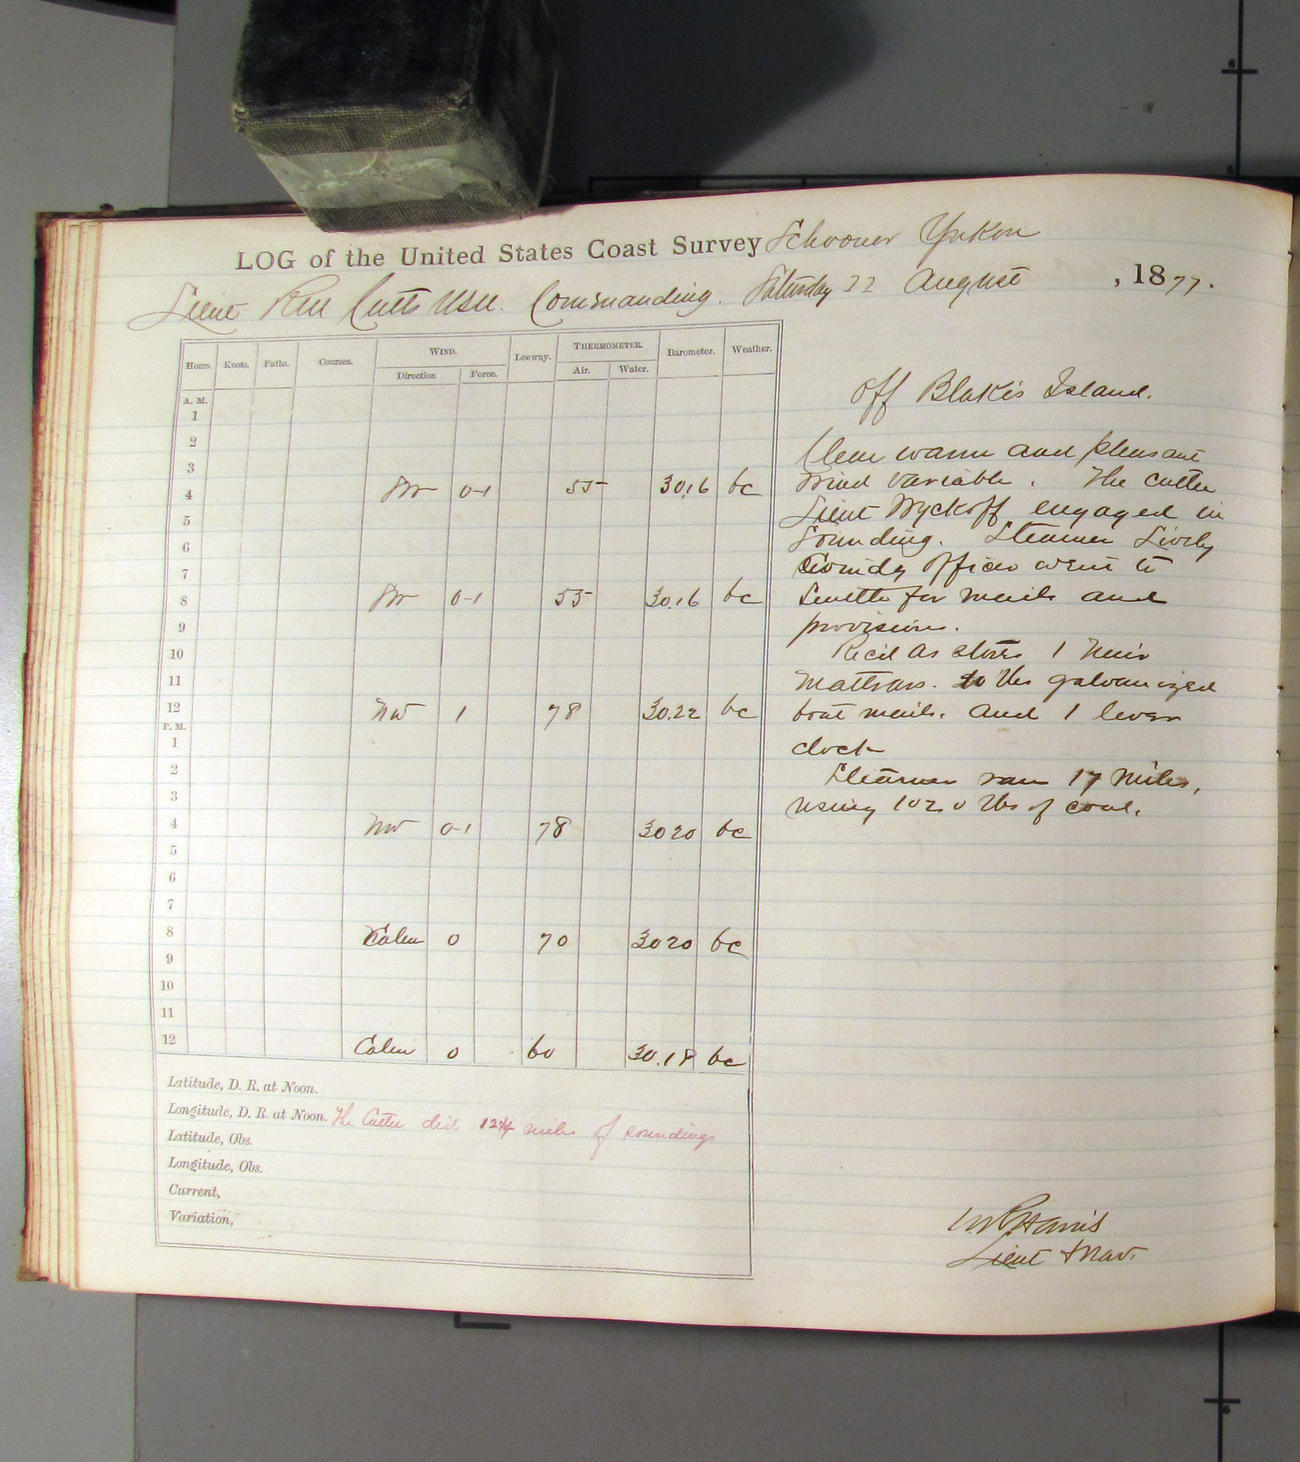 LOG of the United States Coast Survey Schooner Yukon
Lieut Cutts USN. Commanding. Saturday 22 August, 1877.
Hours. Knots. Faths. Courses. WIND. Leeway. THERMOMETER. Barometer. Weather.
Direction Force. Air. Water.
A. M.
1
2
3
4 0-1 55 30,16 bc
5
6
7
8 0-1 55 30.16 bc
9
10
11
12 NW 1 78 30.22 bc
P. M.
1
2
3
4 NW 0-1 78 3020 bc
5
6
7
8 Calm 0 70 3020 bc
9
10
11
12 Calm 0 60 30.18 bc
Latitude, D. R. at Noon.
Longitude, D. R. at Noon. The Cutter did 12¼ miles of soundings
Latitude, Obs.
Longitude, Obs.
Current,
Variation,
Off Blake's Island.
Clear warm and pleasant
Wind variable. The cutter
Lieut Wyckoff engaged in
Sounding. Steamer Lively
officer went to
Seattle for mails and
provisions.
Rec'd as stores 1 hair
Mattrass. 10 lbs galvanized
boat nails. and 1 lever
clock
Steamer ran 17 miles,
using 1020 lbs of coal.
Harris
Lieut & Nav.